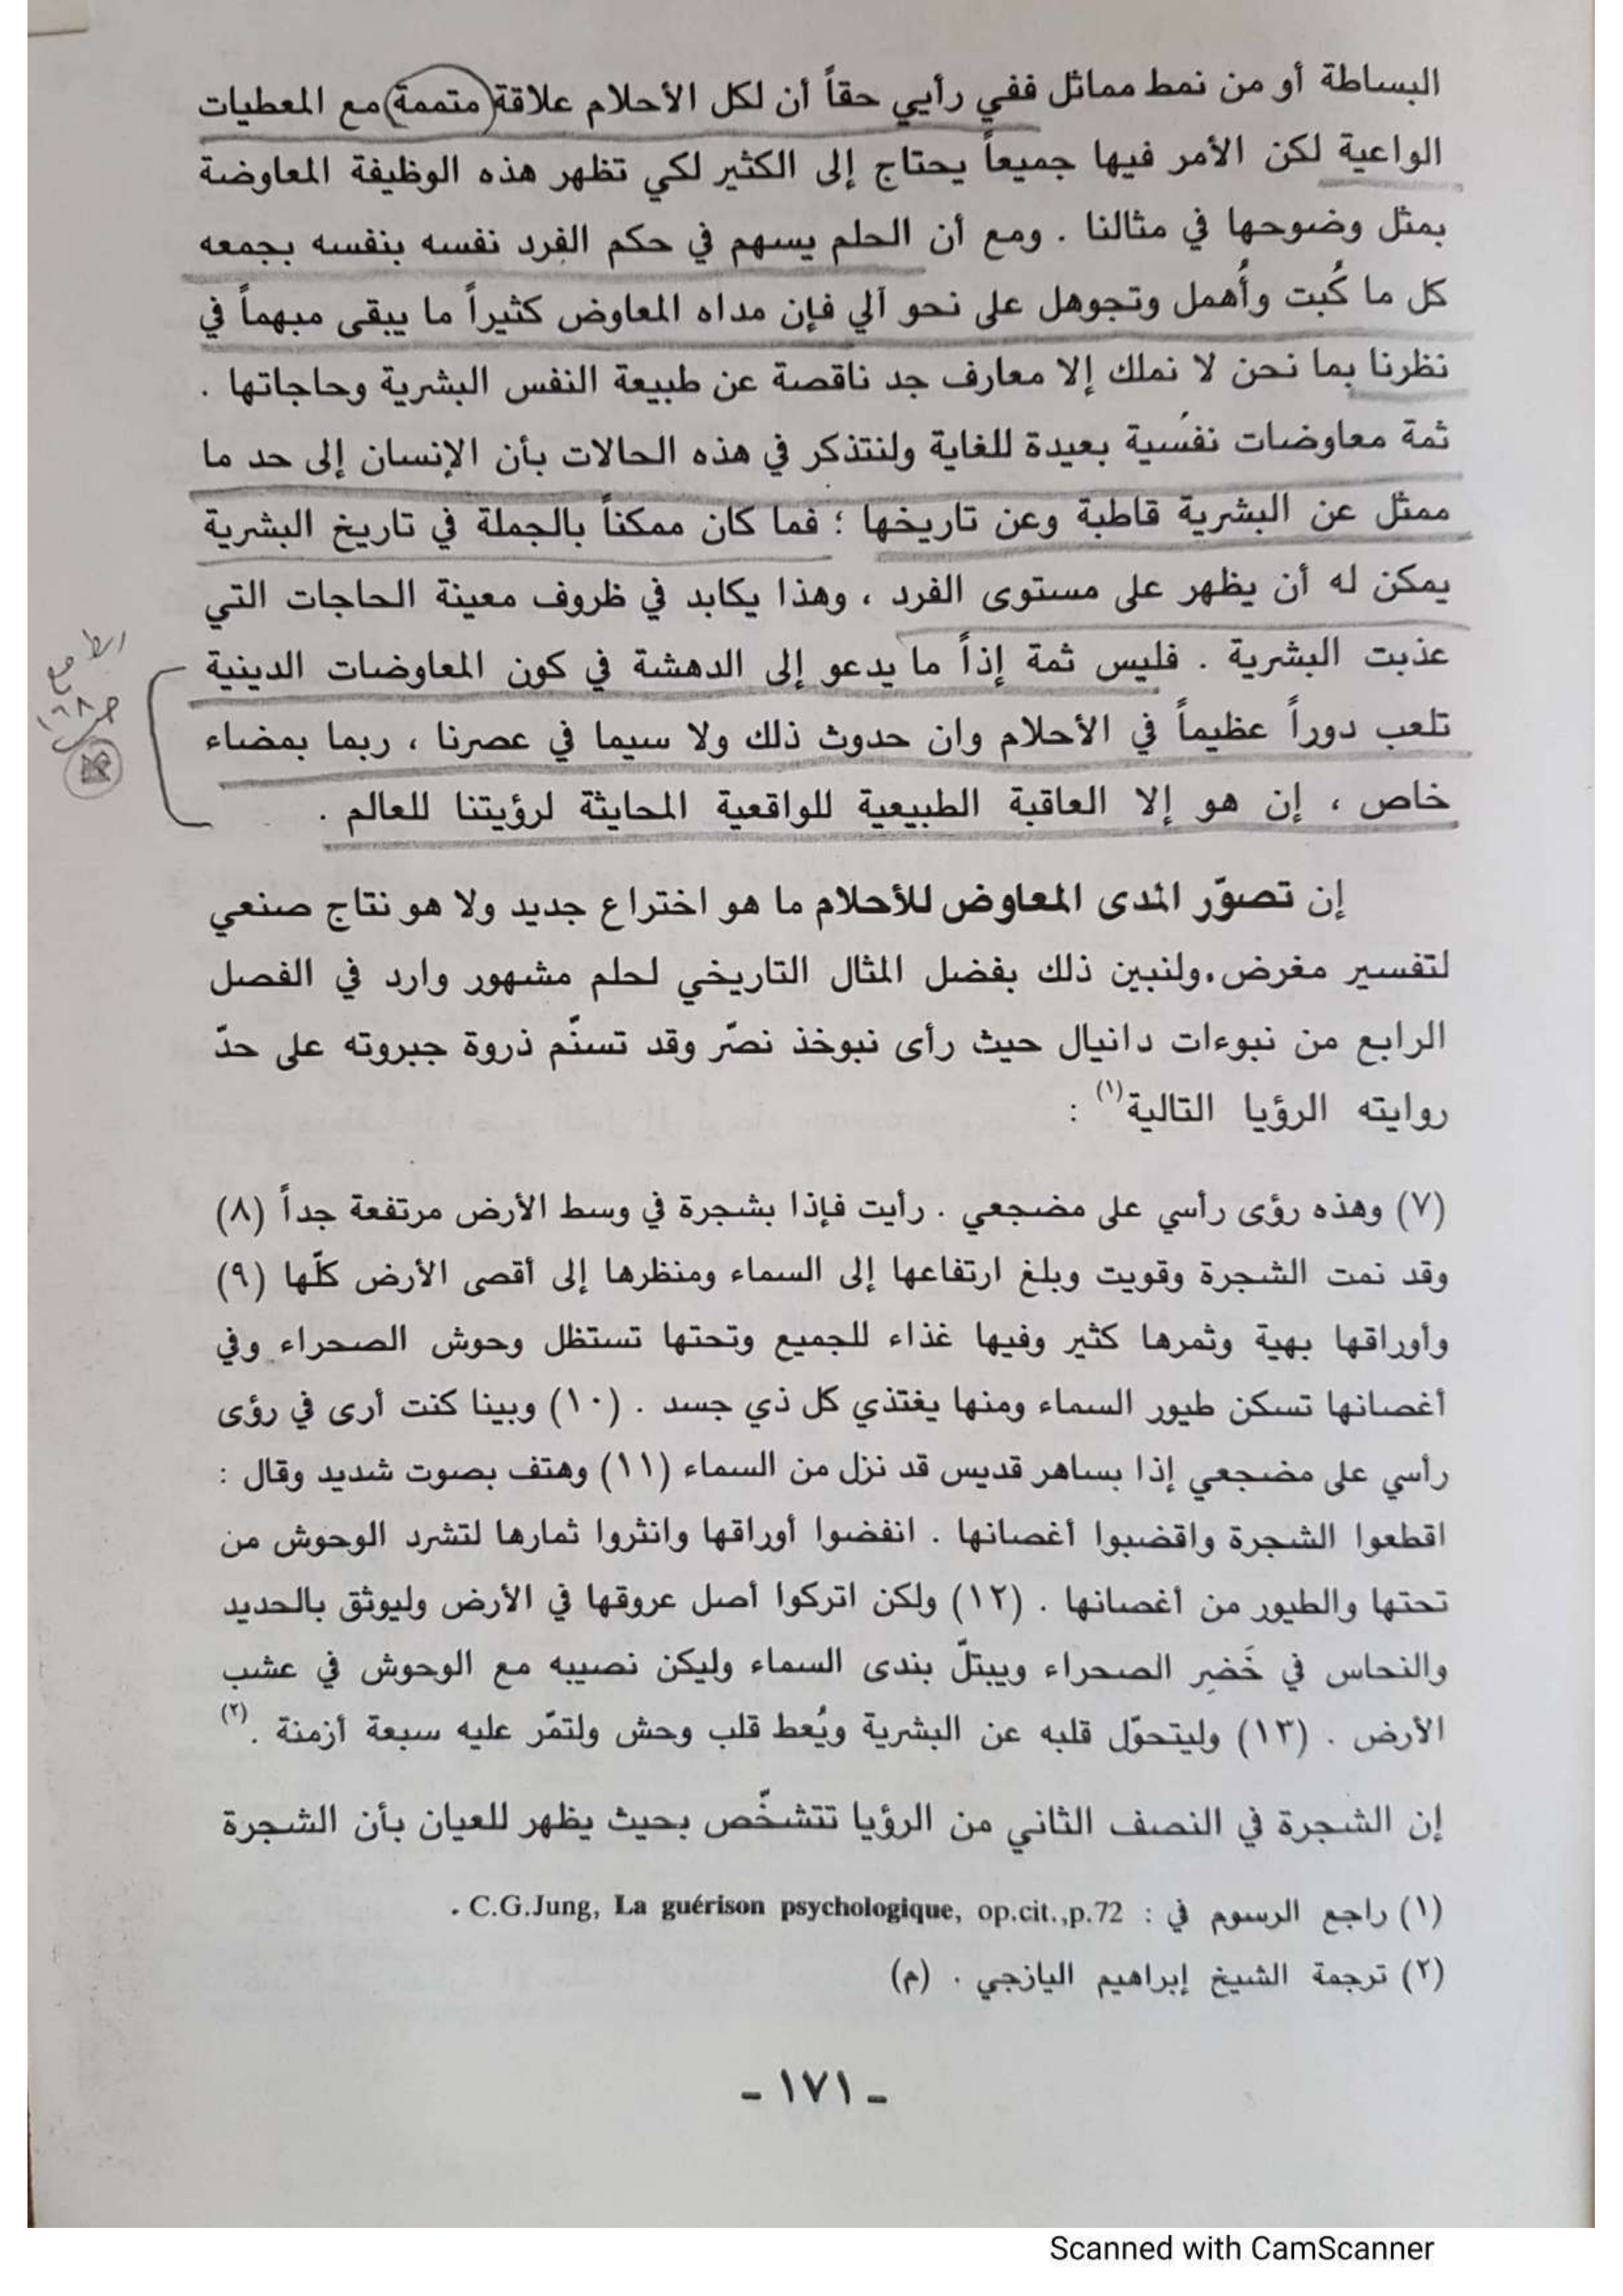 البساطة أو من نمط مماثل ففي رأيي حقاً أن لكل الأحلام علاقة (متممة) مع المعطيات
الواعية لكن الأمر فيها جميعاً يحتاج إلى الكثير لكي تظهر هذه الوظيفة المعاوضة
بمثل وضوحها في مثالنا . ومع أن الحلم يسهم في حكم الفرد نفسه بنفسه بجمعه
كل ما كُبت وأُهمل وتجوهل على نحو آلي فإن مداه المعاوض كثيراً ما يبقى مبهماً في
نظرنا بما نحن لا نملك إلا معارف جد ناقصة عن طبيعة النفس البشرية وحاجاتها .
ثمة معاوضات نفسية بعيدة للغاية ولنتذكر في هذه الحالات بأن الإنسان إلى حد ما
ممثل عن البشرية قاطبة وعن تاريخها ؛ فما كان ممكناً بالجملة في تاريخ البشرية
يمكن له أن يظهر على مستوى الفرد ، وهذا يكابد في ظروف معينة الحاجات التي
عذبت البشرية . فليس ثمة إذاً ما يدعو إلى الدهشة في كون المعاوضات الدينية
تلعب دوراً عظيماً في الأحلام وان حدوث ذلك ولا سيما في عصرنا ، ربما بمضاء
خاص ، إن هو إلا العاقبة الطبيعية للواقعية المحايثة لرؤيتنا للعالم .
إن تصوّر المدى المعاوض للأحلام ما هو اختراع جديد ولا هو نتاج صنعي
لتفسير مغرض . ولنبين ذلك بفضل المثال التاريخي لحلم مشهور وارد في الفصل
الرابع من نبوءات دانيال حيث رأى نبوخذ نصّر وقد تسنّم ذروة جبروته على حدّ
روايته الرؤيا التالية(١) :
(٧) وهذه رؤى رأسي على مضجعي . رأيت فإذا بشجرة في وسط الأرض مرتفعة جداً (٨)
وقد نمت الشجرة وقويت وبلغ ارتفاعها إلى السماء ومنظرها إلى أقصى الأرض كلّها (٩)
وأوراقها بهية وثمرها كثير وفيها غذاء للجميع وتحتها تستظل وحوش الصحراء وفي
أغصانها تسكن طيور السماء ومنها يغتذي كل ذي جسد . (١٠) وبينا كنت أرى في رؤى
رأسي على مضجعي إذا بساهر قديس قد نزل من السماء (١١) وهتف بصوت شديد وقال :
اقطعوا الشجرة واقضبوا أغصانها . انفضوا أوراقها وانثروا ثمارها لتشرد الوحوش من
تحتها والطيور من أغصانها . (١٢) ولكن اتركوا أصل عروقها في الأرض وليوثق بالحديد
والنحاس في خَضِر الصحراء ويبتلّ بندى السماء وليكن نصيبه مع الوحوش في عشب
الأرض . (١٣) وليتحوّل قلبه عن البشرية ويُعط قلب وحش ولتمّر عليه سبعة أزمنة .(٢)
إن الشجرة في النصف الثاني من الرؤيا تتشخّص بحيث يظهر للعيان بأن الشجرة
(١) راجع الرسوم في : C.G.Jung, La guérison psychologique, op.cit.,p.72 .
(٢) ترجمة الشيخ إبراهيم اليازجي . (م)
- ١٧١ -
Scanned with CamScanner